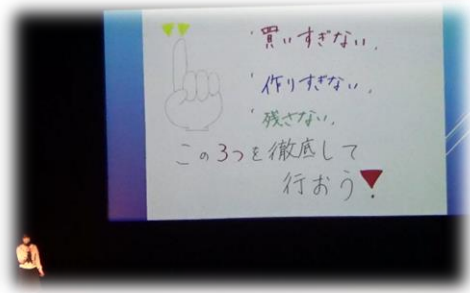 '買いすぎない,
'作りすぎない,
'残さない,
この3つを徹底して
行おう!